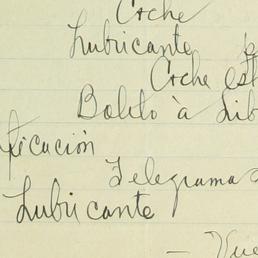 Coche
Lubricante
Coche est
Boleto à Lib
ficación
Telegrama
Lubricante
— Vue